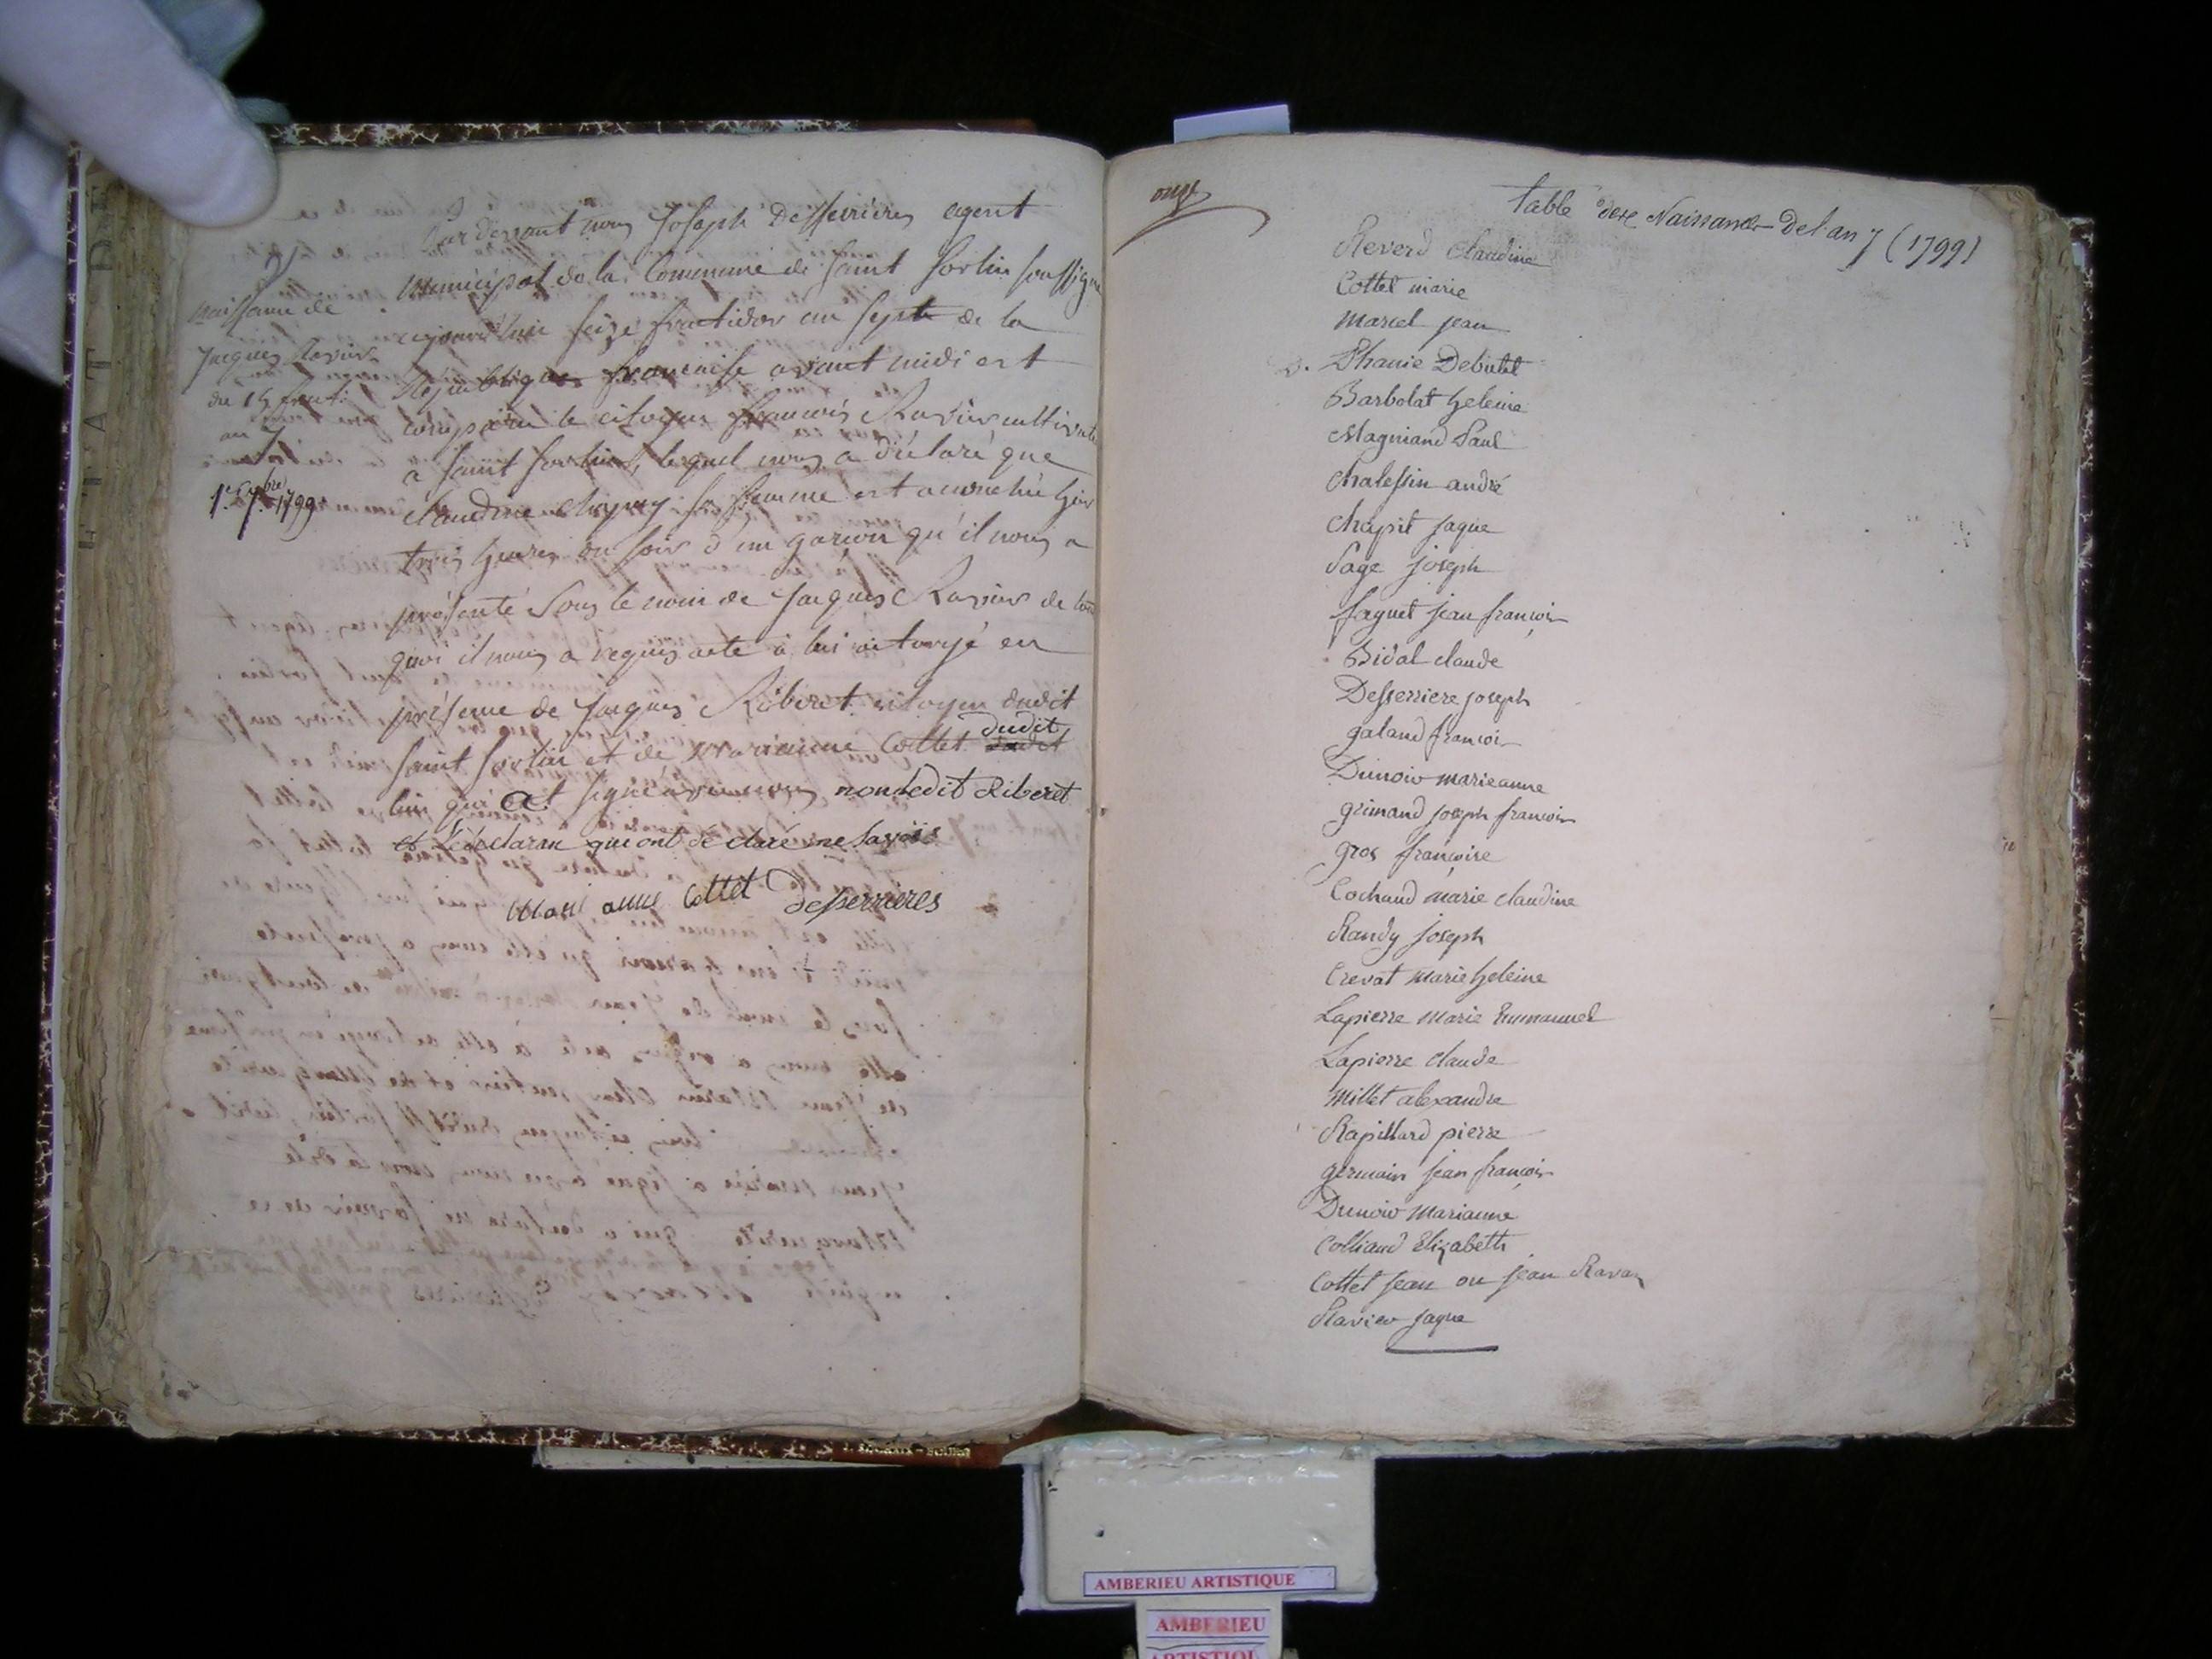 Par devant nous Joseph Desserrieres agent
municipal de la Commune de saint sorlin soussigné
cejourd'hui seize fructidor an sept de la
République francaise avant midi est
comparu le citoyen francois Ravier cultivateur
a saint sorlin, lequel nous a déclaré que
claudine chapuy sa femme est accouchée hier
trois heures du soir d'un garcon qu'il nous a
présenté Sous le nom de jacques Ravier de tout
quoi il nous a requis acte à lui octroyé en
présence de jacques Riberet citoyen dudit
saint sorlin et de marianne Cottet dudit
lieu qui a signé avec nous non ledit Riberet
et le declaran qui ont déclaré ne savoir
marie anne Cottet desserrieres
7
naissance de
jacques Ravier
du 15 fruct.
an 7
1er 7bre 1799
onze
table des Naissances De l'an 7 (1799)
Reverd claudine
Cottet marie
marcel jean
D. Phanie Debutet
Barbolat heleine
Magniand Paul
chalessin andré
chapit jaque
Sage joseph
faguet jean francois
Bidal claude
Desserriere joseph
galand francois
Dunoir marieanne
grimand joseph francois
gros francoise
Cochaud marie claudine
Randy joseph
Crevat marie heleine
Lapierre marie Emmanuel
Lapierre claude
Millet alexandre
Rapillard pierre
germain jean francois
Dunoir marianne
Colliand Elizabeth
Cottet jean ou jean Ravan
Ravier jaque
AMBERIEU ARTISTIQUE
AMBERIEU
ARTISTIQUE